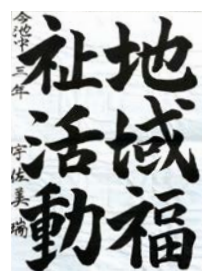 地域福
祉活動
今池中三年 宇佐美瑞